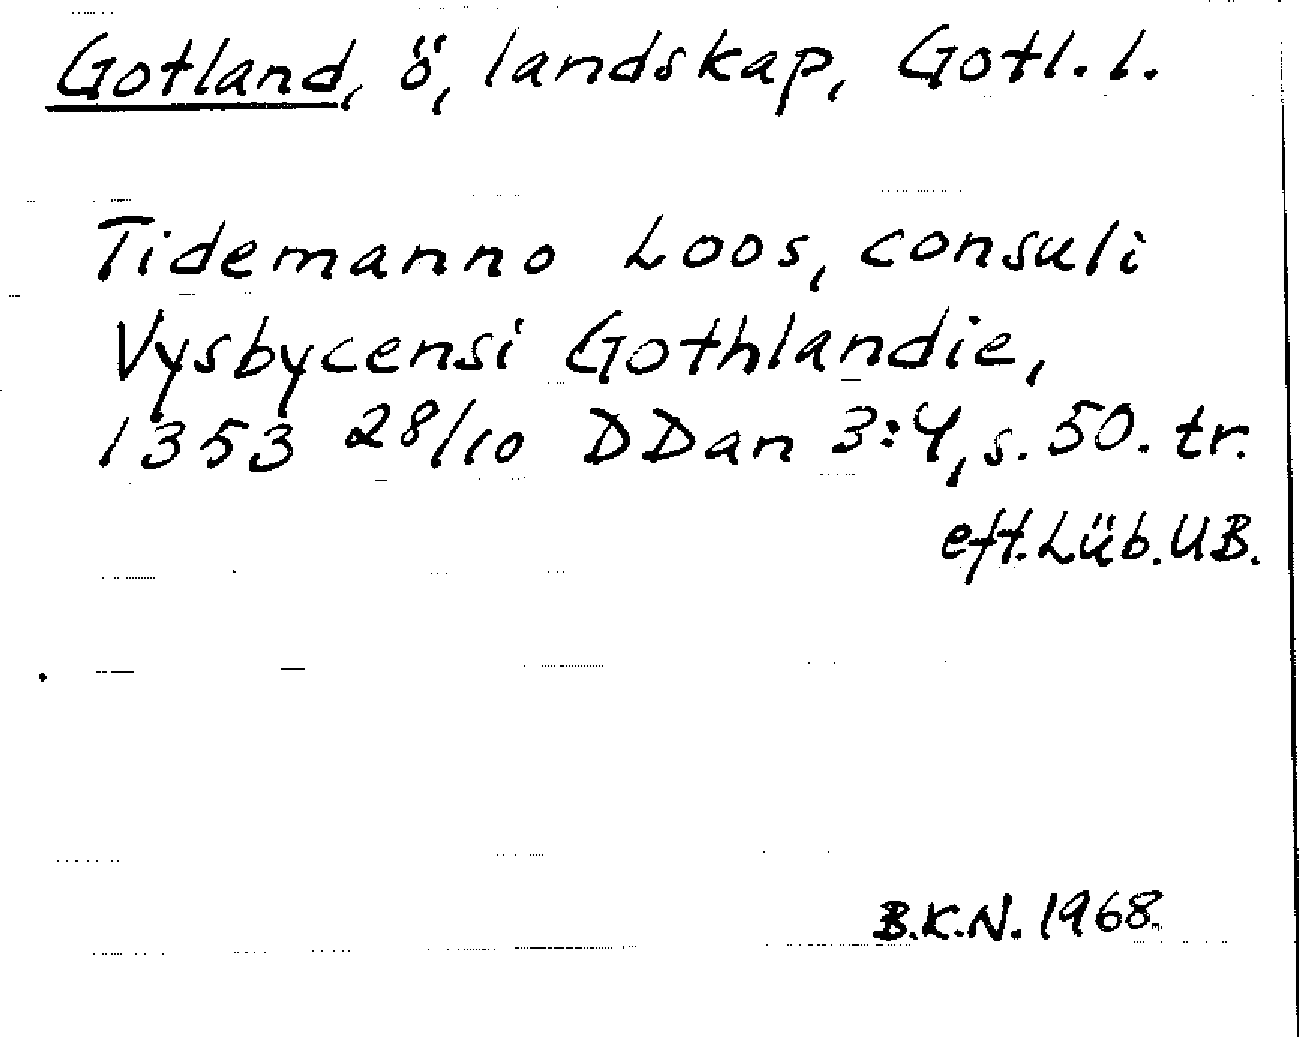 Gotland, ö, landskap, Gotl. l.
Tidemanno Loos, consuli
Vysbycensi Gothlandie,
1353 28/10 DDan 3:4, s. 50. tr.
eft. Lüb. UB.
B.K.N. 1968.